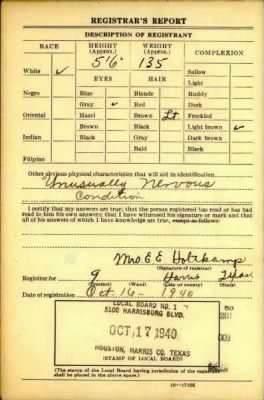 REGISTRAR'S REPORT
DESCRIPTION OF REGISTRANT
RACE HEIGHT (Approx.) WEIGHT (Approx.) COMPLEXION
White ✓ 5'6" 135 Sallow
EYES HAIR Light
Negro Blue Blonde Ruddy
Gray ✓ Red Dark
Oriental Hazel Brown Lt. Freckled
Brown Black Light brown ✓
Indian Black Gray Dark brown
Bald Black
Filipino
Other obvious physical characteristics that will aid in identification
Unusually Nervous
Condition
I certify that my answers are true; that the person registered has read or has had
read to him his own answers; that I have witnessed his signature or mark and that
all of his answers of which I have knowledge are true, except as follows:
Mrs. E E Holtkamp
(Signature of registrar)
Registrar for 9 Harris Texas
(Precinct) (City or county) (State)
Date of registration Oct-16-1940
LOCAL BOARD NO. 1
5100 HARRISBURG BLVD.
OCT, 17 1940
HOUSTON, HARRIS CO. TEXAS
(STAMP OF LOCAL BOARD)
(The stamp of the Local Board having jurisdiction of the registrant
shall be placed in the above space.)